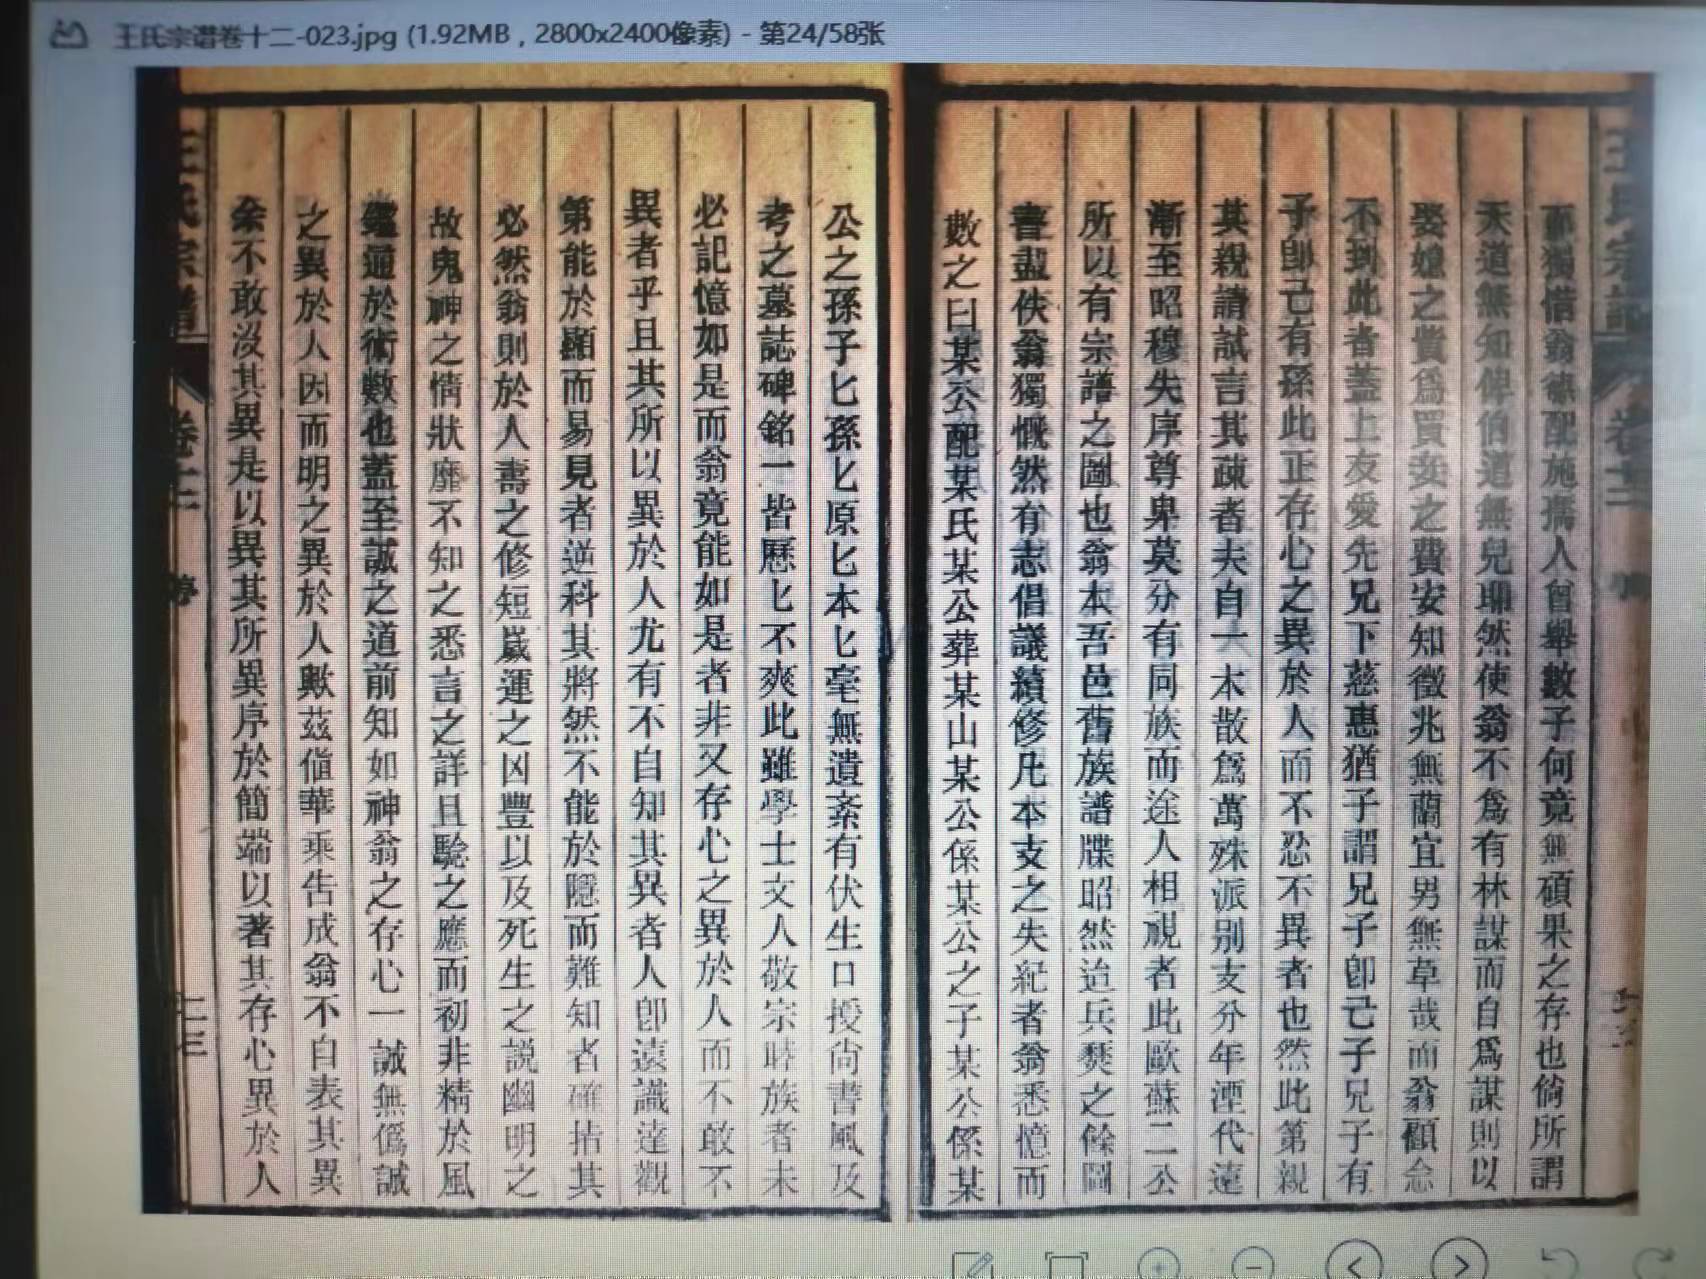 王氏宗谱卷十二-023.jpg (1.92MB , 2800x2400像素) - 第24/58张
王氏宗譜 卷十二
而獨惜翁德配施孺人曾舉數子何竟無碩果之存也倘所謂
天道無知俾伯道無兒耶然使翁不爲有林謀而自爲謀則以
娶媳之貲爲買妾之費安知徵兆無蘭宜男無草哉而翁顧念
不到此者蓋上友愛先兄下慈惠猶子謂兄子卽己子兄子有
子卽己有孫此正存心之異於人而不忍不異者也然此第親
其親請試言其疎者夫自一本散爲萬殊派别支分年湮代遠
漸至昭穆失序尊卑莫分有同族而途人相視者此歐蘇二公
所以有宗譜之圖也翁本吾邑舊族譜牒昭然迨兵燹之餘圖
書盡佚翁獨慨然有志倡議續修凡本支之失紀者翁悉憶而
數之曰某公配某氏某公葬某山某公係某公之子某公係某
公之孫子匕孫匕原匕本匕毫無遺紊有伏生口授尙書風及
考之墓誌碑銘一皆歷匕不爽此雖學士文人敬宗睦族者未
必記憶如是而翁竟能如是者非又存心之異於人而不敢不
異者乎且其所以異於人尤有不自知其異者人卽遠識達觀
第能於顯而易見者逆料其將然不能於隱而難知者確指其
必然翁則於人壽之修短嵗運之凶豐以及死生之説幽明之
故鬼神之情狀靡不知之悉言之詳且驗之應而初非精於風
鑑通於術數也蓋至誠之道前知如神翁之存心一誠無僞誠
之異於人因而明之異於人歟茲値華乘告成翁不自表其異
余不敢沒其異是以異其所異序於簡端以著其存心異於人
王氏宗譜 卷十二 序